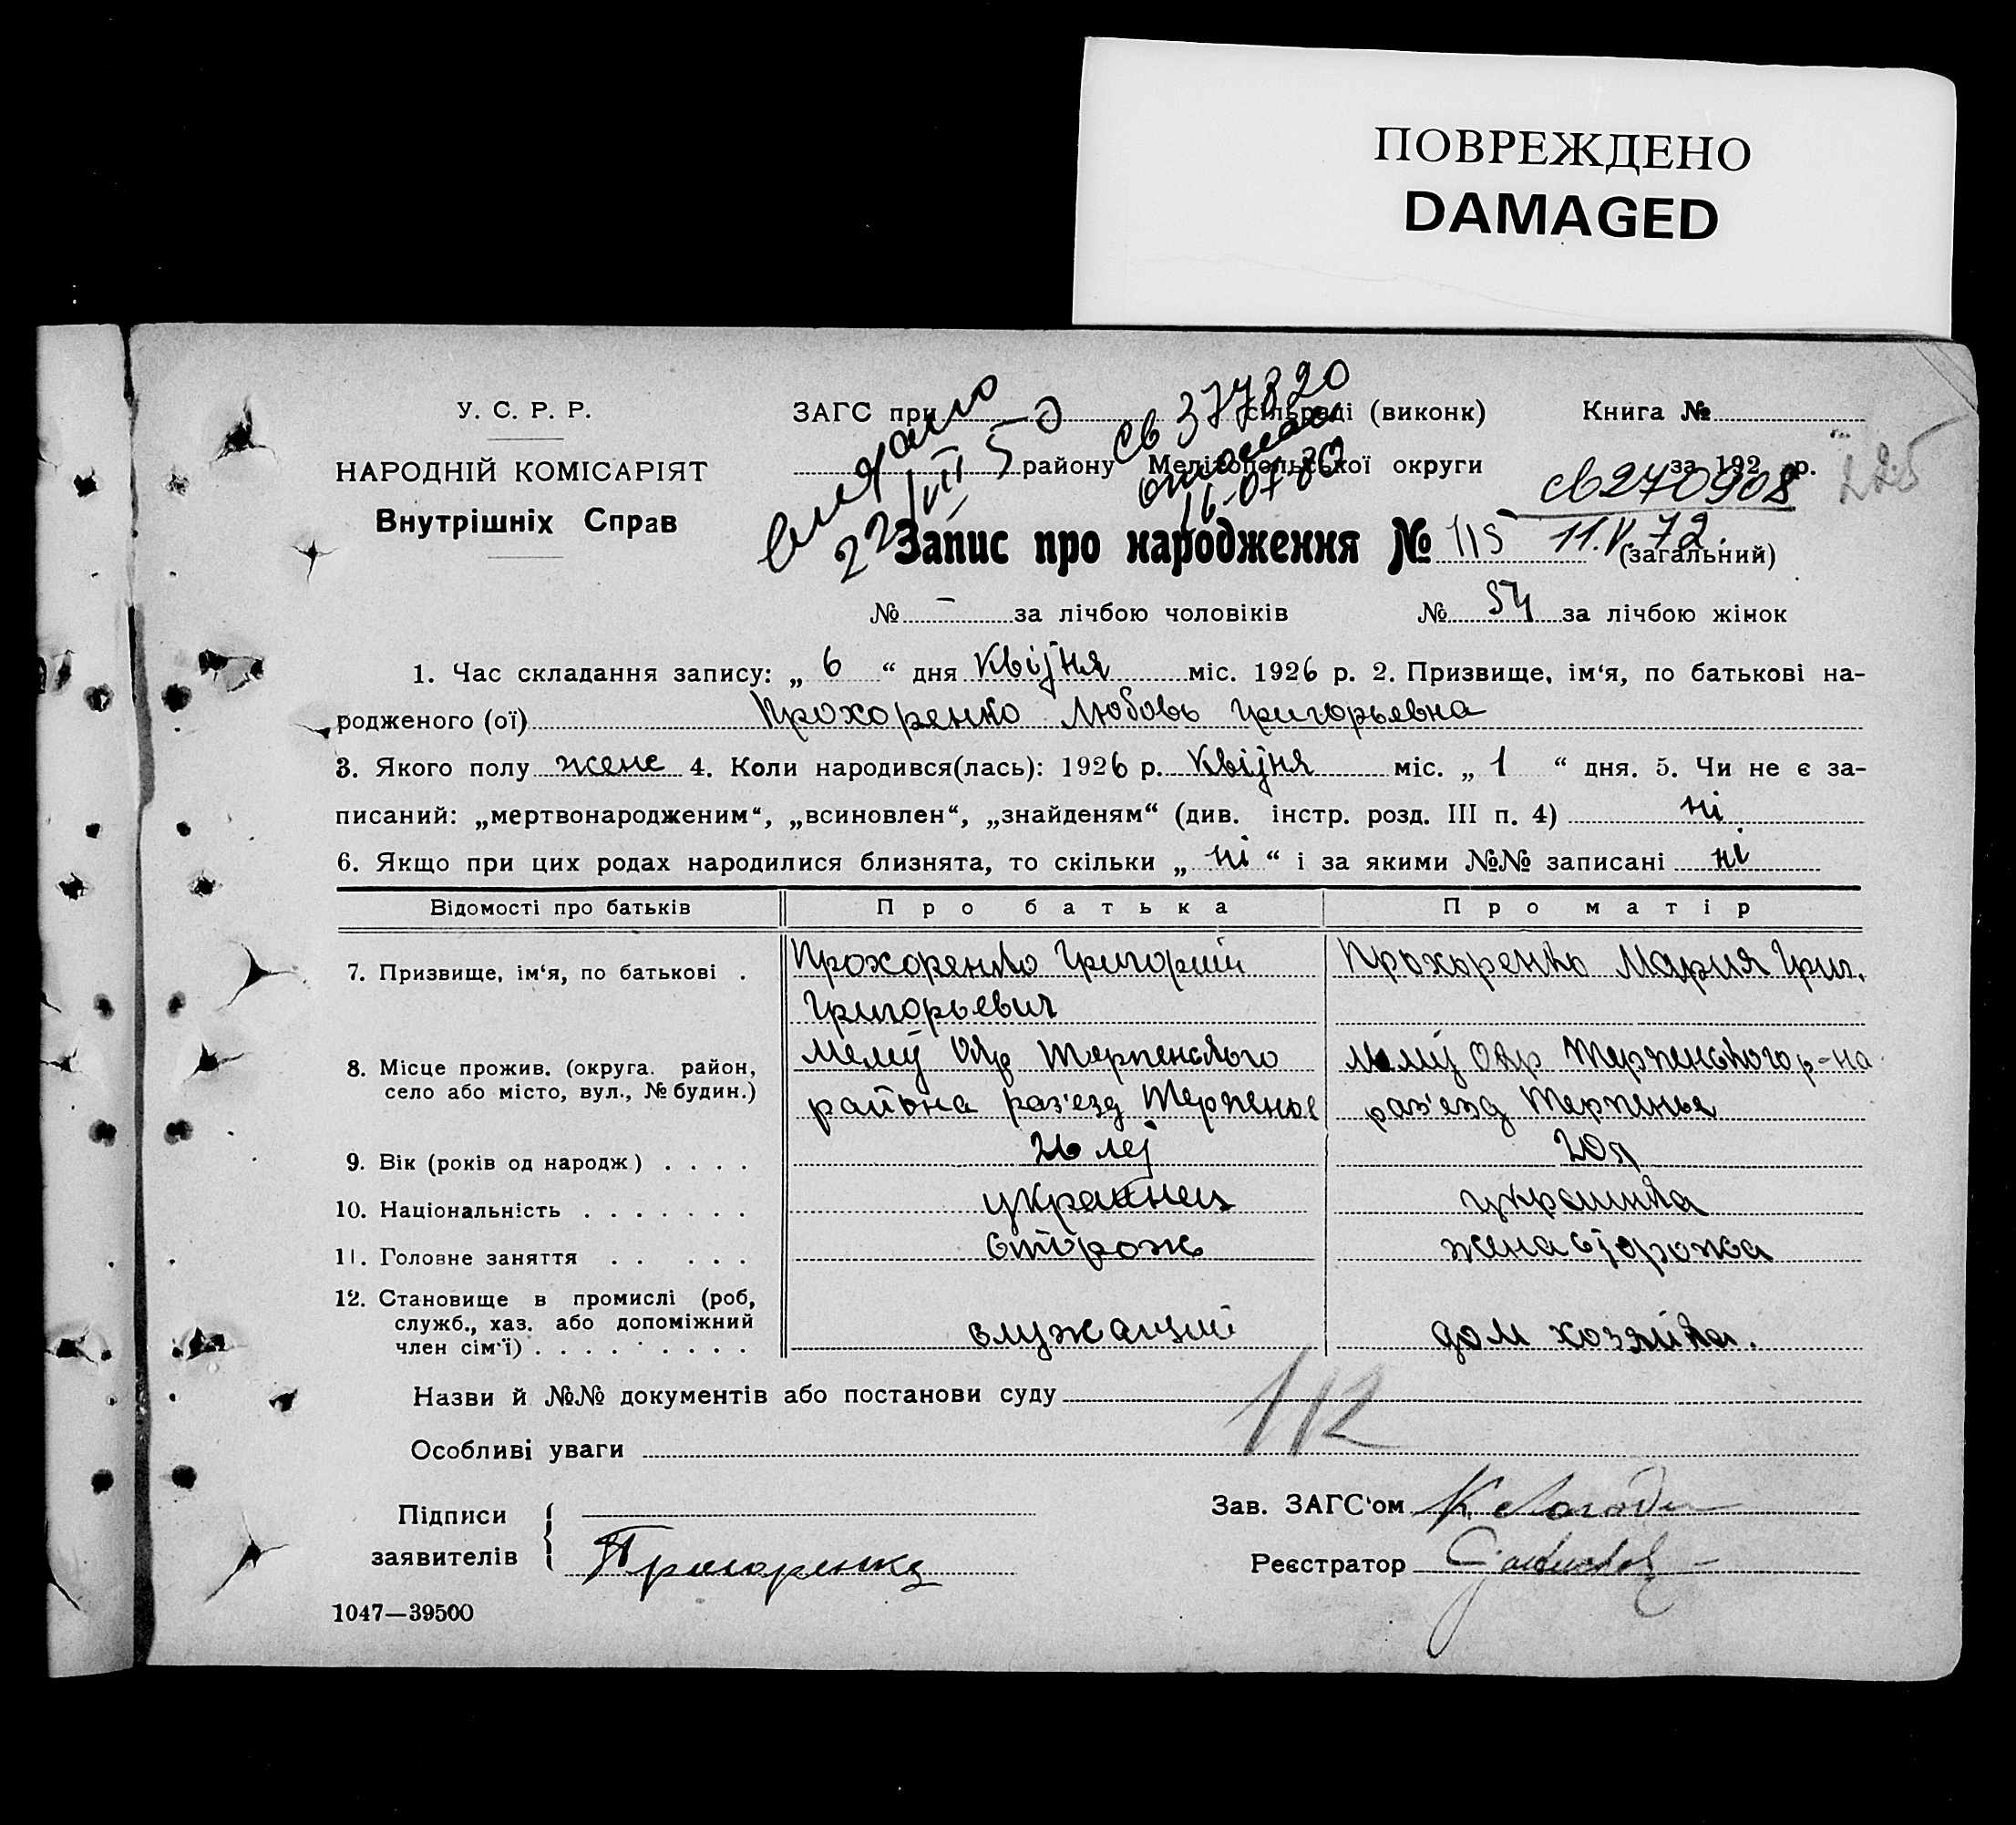 ПОВРЕЖДЕНО
DAMAGED
У. С. Р. Р.
НАРОДНІЙ КОМІСАРІЯТ
Внутрішніх Справ
ЗАГС при сільраді (виконк) Книга №
району Мелітопольської округи за 192 р.
св 377820
16-07-80
22/VII 50
св 270908
11.V.72.
225
Запис про народження № 115 (загальний)
№ – за лічбою чоловіків № 54 за лічбою жінок
1. Час складання запису: „ 6 “ дня Квітня міс. 1926 р. 2. Призвище, ім‘я, по батькові на-
родженого (ої) Прохоренко Любовь Григорьевна
3. Якого полу женс 4. Коли народився(лась): 1926 р. Квітня міс. „ 1 “ дня. 5. Чи не є за-
писаний: „мертвонародженим“, „всиновлен“, „знайденям“ (див. інстр. розд. III п. 4) ні
6. Якщо при цих родах народилися близнята, то скільки „ ні “ і за якими №№ записані ні
Відомості про батьків Про батька Про матір
7. Призвище, ім‘я, по батькові . Прохоренко Григорий Прохоренко Мария Григ.
Григорьевич
8. Місце прожив. (округа. район, Окр Терпенского Окр Терпенського р-на
село або місто, вул., № будин.) района раз'езд Терпенье раз'езд Терпенье
9. Вік (років од народж.) . . . . 26 лет 20 л
10. Національність . . . . . . . украинец украинка
11. Головне заняття . . . . . сторож жена сторожа
12. Становище в промислі (роб,
служб., хаз. або допоміжний
член сім‘ї) . . . . . . . . . служащий дом хозяйка.
Назви й №№ документів або постанови суду
112
Особливі уваги
Підписи
заявителів Прохоренко
Зав. ЗАГС‘ом
Реєстратор
1047—39500